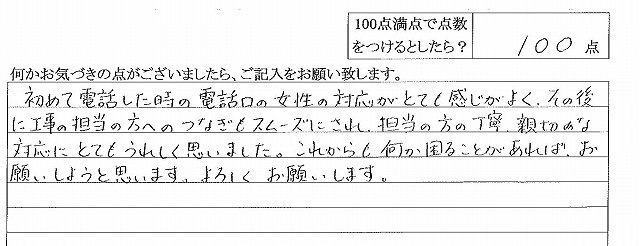 100点満点で点数
をつけるとしたら？ 100 点
何かお気づきの点がございましたら、ご記入をお願い致します。
初めて電話した時の電話口の女性の対応がとても感じがよく、その後
に工事の担当の方へのつなぎもスムーズにされ、担当の方の丁寧、親切な
対応にとてもうれしく思いました。これからも何か困ることがあれば、お
願いしようと思います。よろしくお願いします。